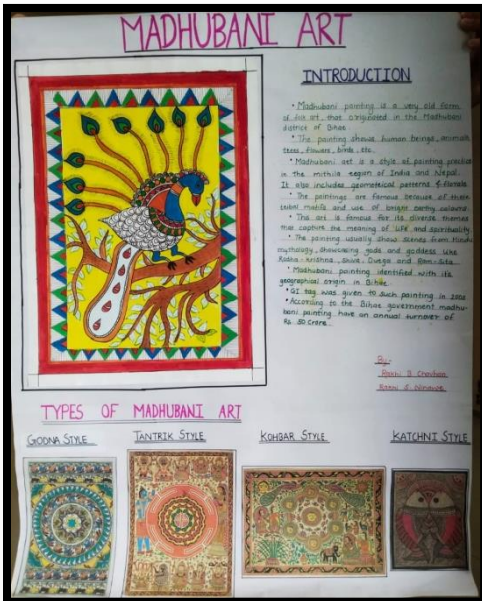 MADHUBANI ART
INTRODUCTION
• Madhubani painting is a very old form
of folk art that originated in the Madhubani
district of Bihar
• The painting shows human beings, animals,
trees, flowers, birds, etc.
• Madhubani art is a style of painting practice
in the mithila region of India and Nepal.
It also includes geometrical patterns &
• The paintings are famous because of their
tribal motifs and use of bright earthy colours
• This art is famous for its diverse themes
that capture the meaning of life and spirituality.
• The painting usually show scenes from Hindu
mythology, showcasing gods and goddess like
Radha-krishna, Shiva, Durga and Ram-Sita
• Madhubani painting identified with its
geographical origin in Bihar.
• GI tag was given to such painting in
• According to the Bihar government madhu-
bani painting have an annual turnover of
Rs. 50 Crore
By:-
TYPES OF MADHUBANI ART
GODNA STYLE
TANTRIK STYLE
KOHBAR STYLE
KATCHNI STYLE